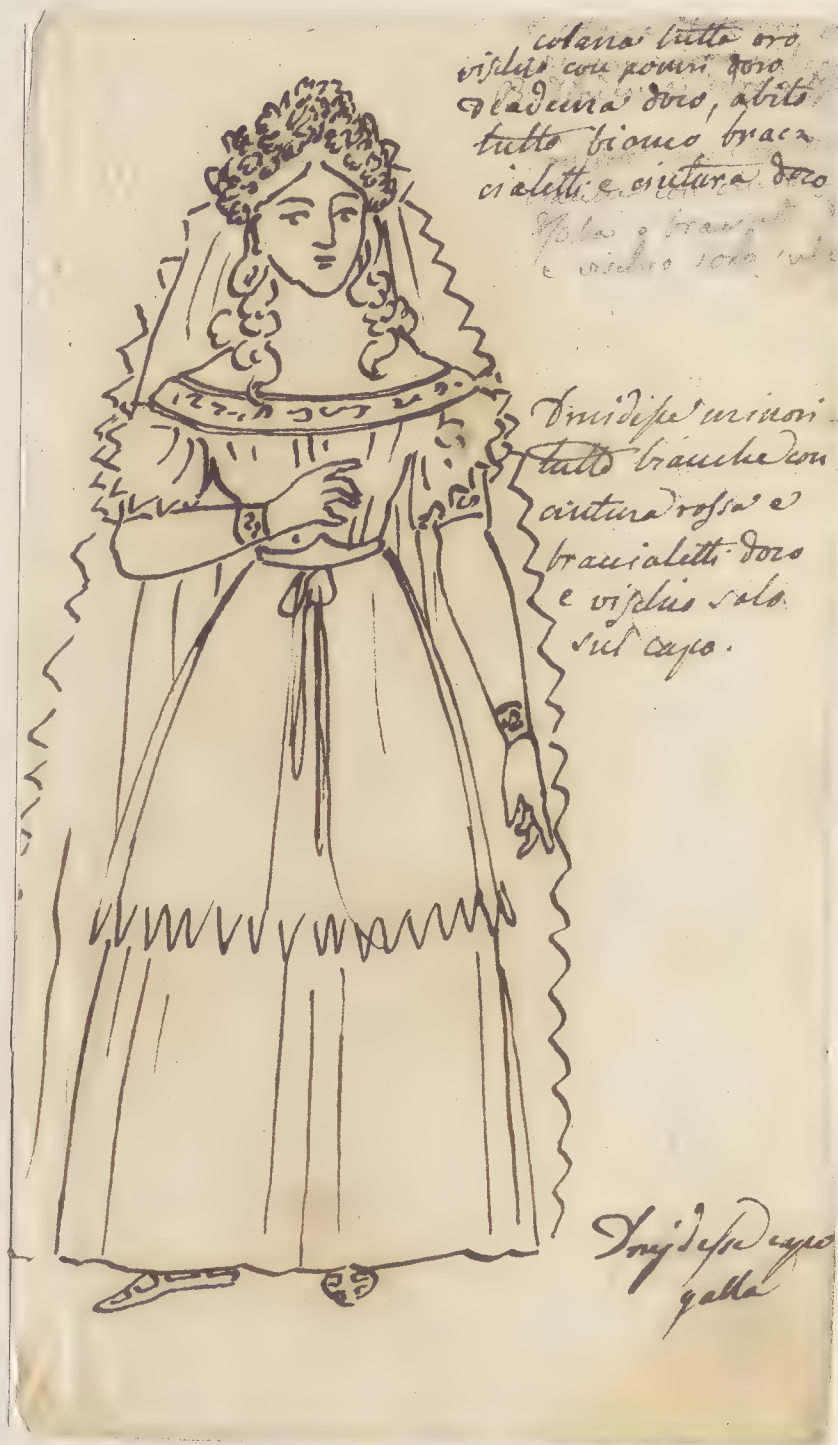 colana tutta oro
vischio con pomi doro
Diadema doro, abito
tutto bianco bracn
cialetti e cintura doro
e vischio solo sul
Druidesse minori
tutto bianche con
cintura rossa e
braccialetti doro
e vischio solo
sul capo.
Druidesse capo
galla